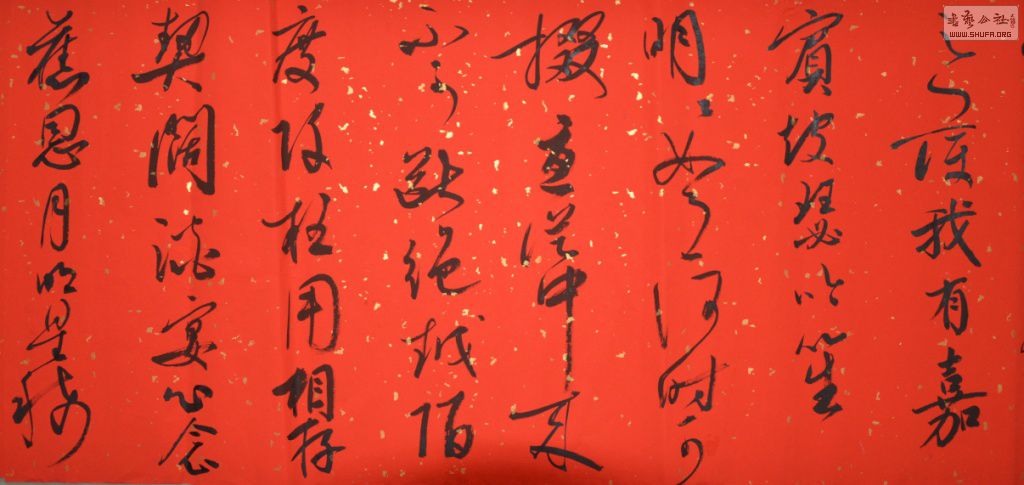 之我有嘉
賓鼓瑟吹笙
明明如月何时可
掇憂從中來
不可斷絕越陌
度阡枉用相存
契闊談宴心念
舊恩月明星稀
書藝公社
WWW.SHUFA.ORG